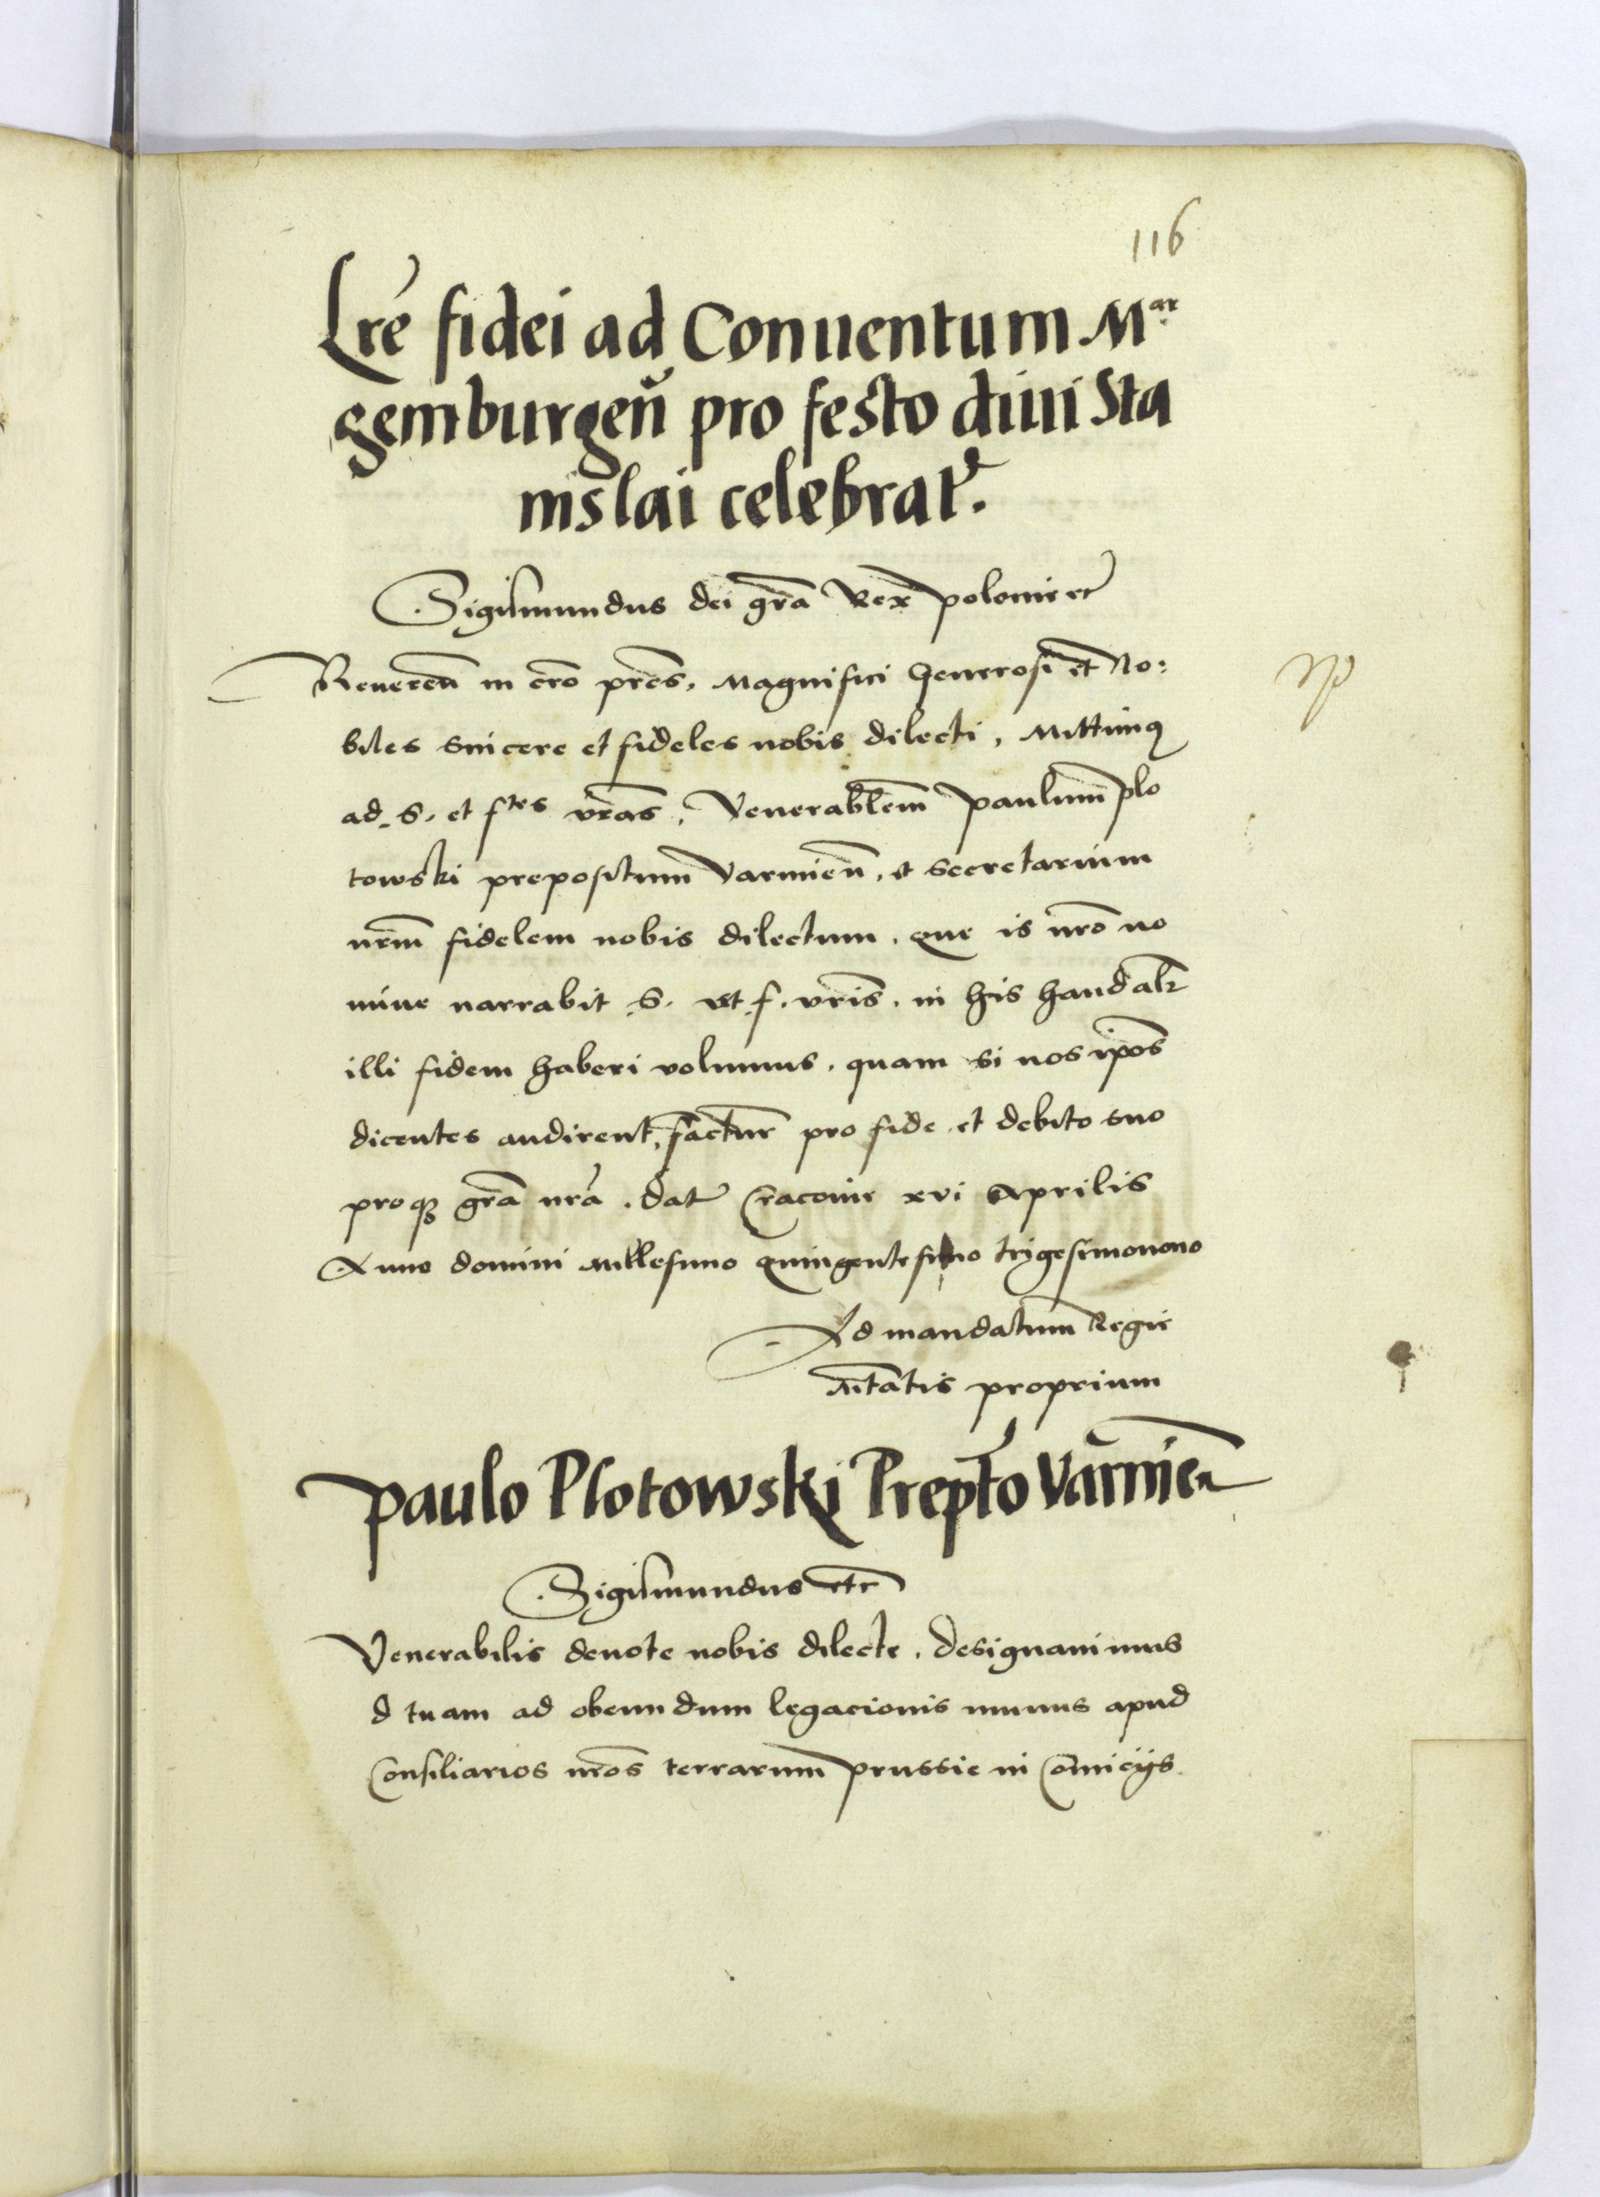 116
Lrē fidei ad Conuentum Mar
gemburgeñ pro festo diui Sta
nislai celebrat.
Sigismundus dei grā Rex polonie etc
Reuereñ in cro prēs, Magnifici Generosi et No:
biles sincere et fideles nobis dilecti, Mittimus
ad S. et ftes vrās, Venerabilem paulum plo
towski prepositum Varmieñ, et secretarium
nrm̄ fidelem nobis dilectum. que is nrō no
mine narrabit S. et f. vris. in his haud alr
illi fidem haberi volumus. quam si nos ipōs
dicentes audirent, factur pro fide et debito suo
proqz grā nrā. Dat Cracouie xvi Aprilis
Anno domini millesimo quingentesimo trigesimonono
Ad mandatum Regie
Mtātis proprium
Paulo Plotowski Prepto Varmieñ
Sigismundus etc
Venerabilis deuote nobis dilecte. Designauimus
d tuam ad obeundum legacionis munus apud
Consiliarios nrōs terrarum prussie in Comicijs